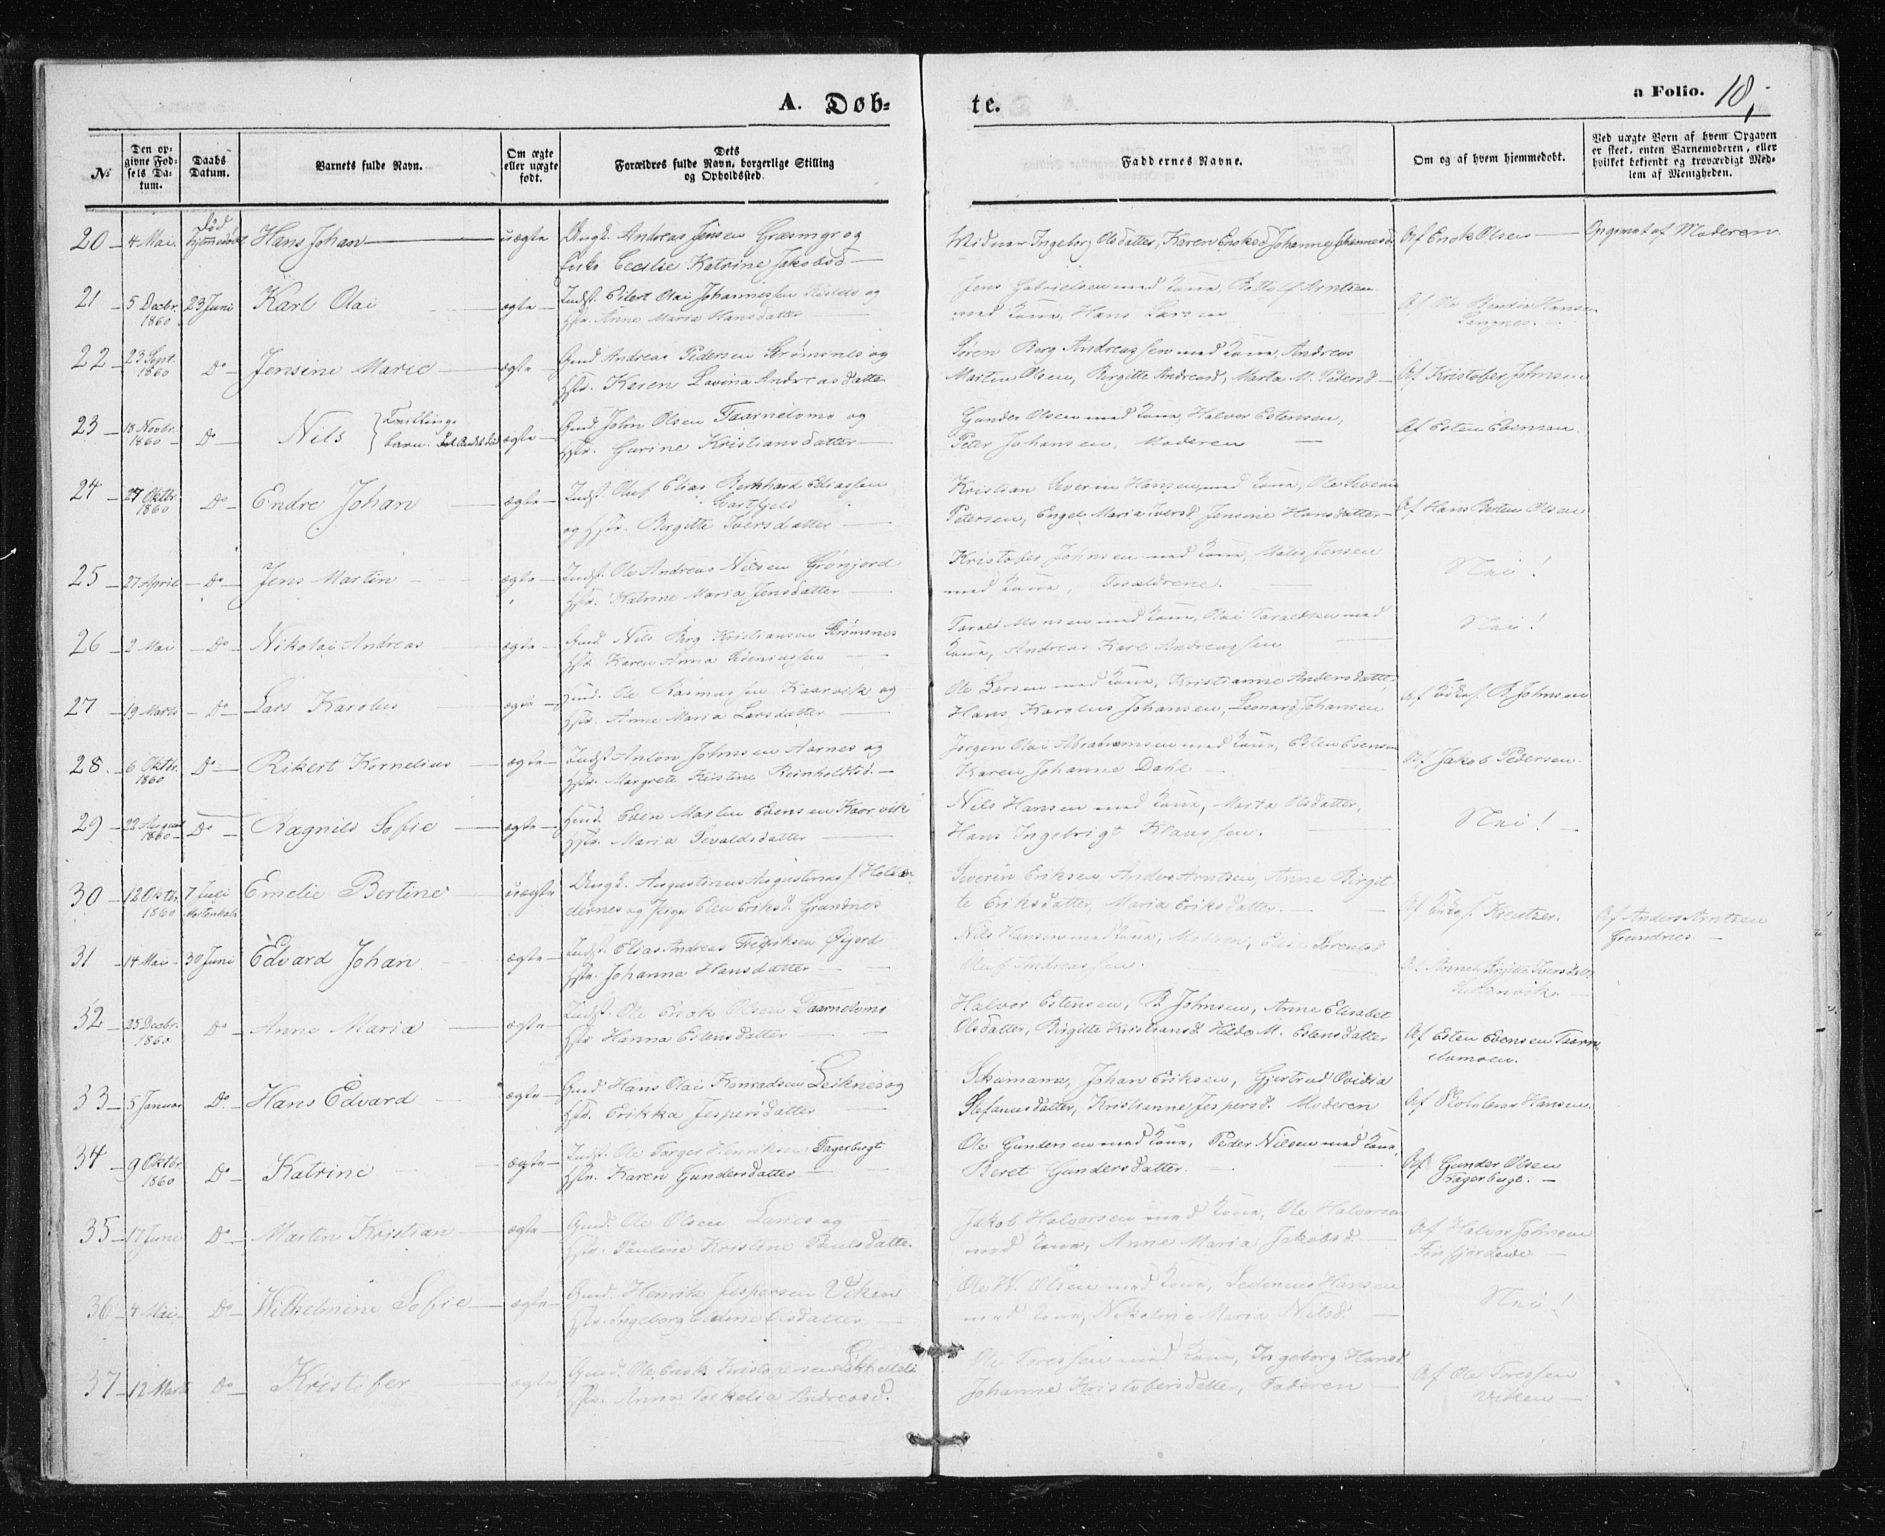 A. Døb-
te.
a Folio. 18,
No
Den op-
givne Fød-
sels Da-
tum.
Daabs
Datum.
Barnets fulde Navn.
Om ægte
eller uægte
født.
Dets
Forældres fulde Navn, borgerlige Stilling
og Opholdssted.
Faddernes Navne.
Om og af hvem hjemmedøbt.
Ved uægte Børn af hvem Opgaven
er skeet, enten Barnemoderen, eller
hvilket bekjendt og troværdigt Med-
lem af Menigheden.
20 4 Mai Død hjemmedøbt Hans Johan uægte Ungk. Andreas Jensen Græsmyr og
Cecilie Katrine Jakobsd
Ingeborg Olsdatter, Karen Enoksd Johanne Johannesd. Af Enok Olsen Opgivet af Moderen
21 5 Decbr. 1860 23 Juni Karl Olai ægte Indst. Eilert Olai Johannessen og
Hstr. Anne Maria Hansdatter
Jens Gabrielsen med Kone, Arntsen
med Kone, Hans Larsen
Af Ole Hansen
22 23 Sept. 1860 Do Jensine Marie ægte Gmd. Andreas Pedersen Strømsnes og
Hstr. Karen Lavina Andreasdatter
Søren Berg Andreassen med Kone, Andreas
Martin Olsen, Birgitte Andreasd, Marta M. Pedersd Af Kristofer Johnsen
23 18 Novbr. 1860 Do Nils Tvillinge- barn ægte Gmd. John Olsen Taarnelvmo og
Hstr. Gurine Kristiansdatter
Gunder Olsen med Kone, Halvor Estensen,
Peter Johansen, Moderen Af Esten Evensen
24 27 Oktbr. 1860 Do Endre Johan ægte Indst. Oluf Elias Berkhard Eliassen
Svartfjeld
og Hstr. Birgitte Iversdatter
Kristian Severin Hansen med Kone, Ole Severin
Petersen, Engel Maria Iversd Jensine Hansdatter Af Hans Berten Olsen
25 27 April Do Jens Martin ægte Indst. Ole Andreas Nilsen Grønjord
Hstr. Katrine Maria Jensdatter
Kristofer Johnsen med Kone, Jensen
med Kone, Forældrene. Nei!
26 2 Mai Do Nikolai Andreas ægte Gmd. Nils Berg Kristiansen Strømsnes
Hstr. Karen Anna
Taral Monsen med Kone, Olai Taraldsen med
Kone, Andreas Karl Andreassen Nei!
27 19 Marts Do Lars Karolus ægte Gmd. Ole Rasmussen Kaarvik og
Hstr. Anne Maria Larsdatter
Ole Larsen med Kone, Kristianne Andersdatter,
Hans Karolus Johansen, Leonard Johansen Af B. Johnsen
28 6 Oktbr. 1860 Do Rikert Kornelius ægte Indst. Anton Johnsen Aarnes og
Hstr. Margrete Kristine Reinholdtsd.
Jørgen Olai Abrahamsen med Kone, Esten Evensen
Karen Johanne Dahl Af Jakob Pedersen
29 22 August 1860 Do Ragnild Sofie ægte Gmd. Eden Martin Edensen Kaarvik
Hstr. Maria Tevaldsdatter
Nils Hansen med Kone, Marta Olsdatter,
Hans Ingebrigt Klaussen. Nei!
30 12 Oktbr. 1860 7 Juli Emelie Bertine uægte Ungk. Augustinus Augustinus
og Pige Elen Eriksd. Grundnes
Severin Eriksen Anders Arntsen, Anne Birgit-
te Eriksdatter, Maria Eriksdatter. Af Kreutzer Af Anders Arntsen
Grundnes
31 14 Mai 30 Juni Edvard Johan ægte Indst. Elias Andreas Fredriksen Øijord
Hstr. Johanna Hansdatter
Nils Hansen med Kone, Elise Sørensd
Oluf Andreassen. Af Anne Birgitte Iversdatter
32 25 Decbr. 1860 Do Anne Maria ægte Indst. Ole Enok Olsen Taarnelvmo
Hstr. Hanna Estensdatter
Halvor Estensen, B. Johnsen, Anne Elisabet
Olsdatter, Birgitte Kristiansd. Hilda M. Estensdatter Af Esten Evensen Taarn-
elvmoen.
33 5 Januar Do Hans Edvard ægte Gmd. Hans Olai Konradsen Leiknes og
Hstr. Erikka Jespersdatter
Schumann, Johan Eriksen, Gjertrud Ovidia
Stefansdatter, Kristianne Jespersd. Moderen Af Hansen
34 9 Oktbr. 1860 Do Katrine ægte Indst. Ole Torger Henriksen Fagerbugt
Hstr. Karen Gundersdatter
Ole Gundersen med Kone, Peder Nilsen med Kone,
Beret Gundersdatter. Af Gunder Olsen
Fagerbugt.
35 17 Juni Do Martin Kristian ægte Gmd. Ole Olsen og
Hstr. Pauline Kristine Paulsdatter
Jakob Halvorsen med Kone, Ole Halvorsen
med Kone, Anne Maria Jakobsd. Af Halvor Johnsen
Finfjordeide
36 4 Mai Do Wilhelmine Sofie ægte Gmd. Henrik Jespersen Viken
Hstr. Ingeborg Olsdatter
Ole W. Olsen med Kone, Sedenius Hansen
med Kone, Nikoline Maria Nilsd. Nei!
37 12 Marts Do Kristofer ægte Gmd. Ole Enok Kristofersen
Hstr. Anna Andreasd.
Ole Toressen med Kone, Ingeborg Hansd.
Johanne Kristofersdatter, Faderen Af Ole Toressen
Viken